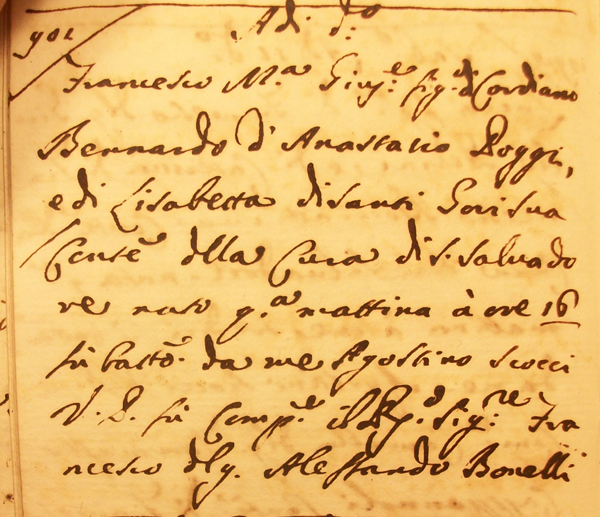 901 Adi d.o
Francesco M.a Gius.e fig.o di Cordiano
Bernardo d'Anastasio Poggi,
e di Lisabetta di Santi Gori sua
Conse. della Cura di S. Salvado
re nato q.a mattina à ore 16
fù batt.o da me Agostino Scocci
V. P. fù Comp.e il Sig.re Fra
ncesco del q. Alessandro Bonelli